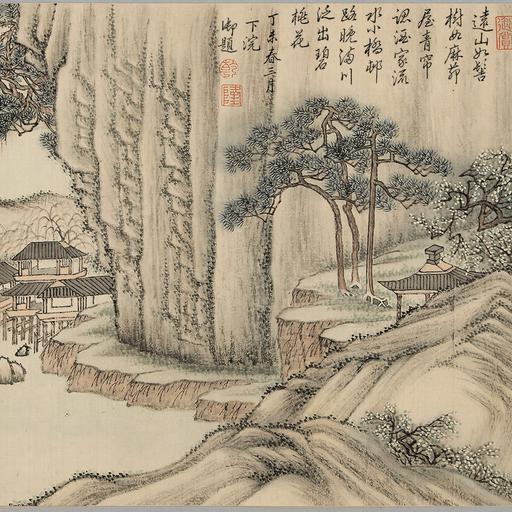 遠山如髻
樹如麻茆
屋青帘
認酒家流
水小橋邨
路晚滿川
泛出碧
桃花
丁未春三月
下浣
御題
乾
隆